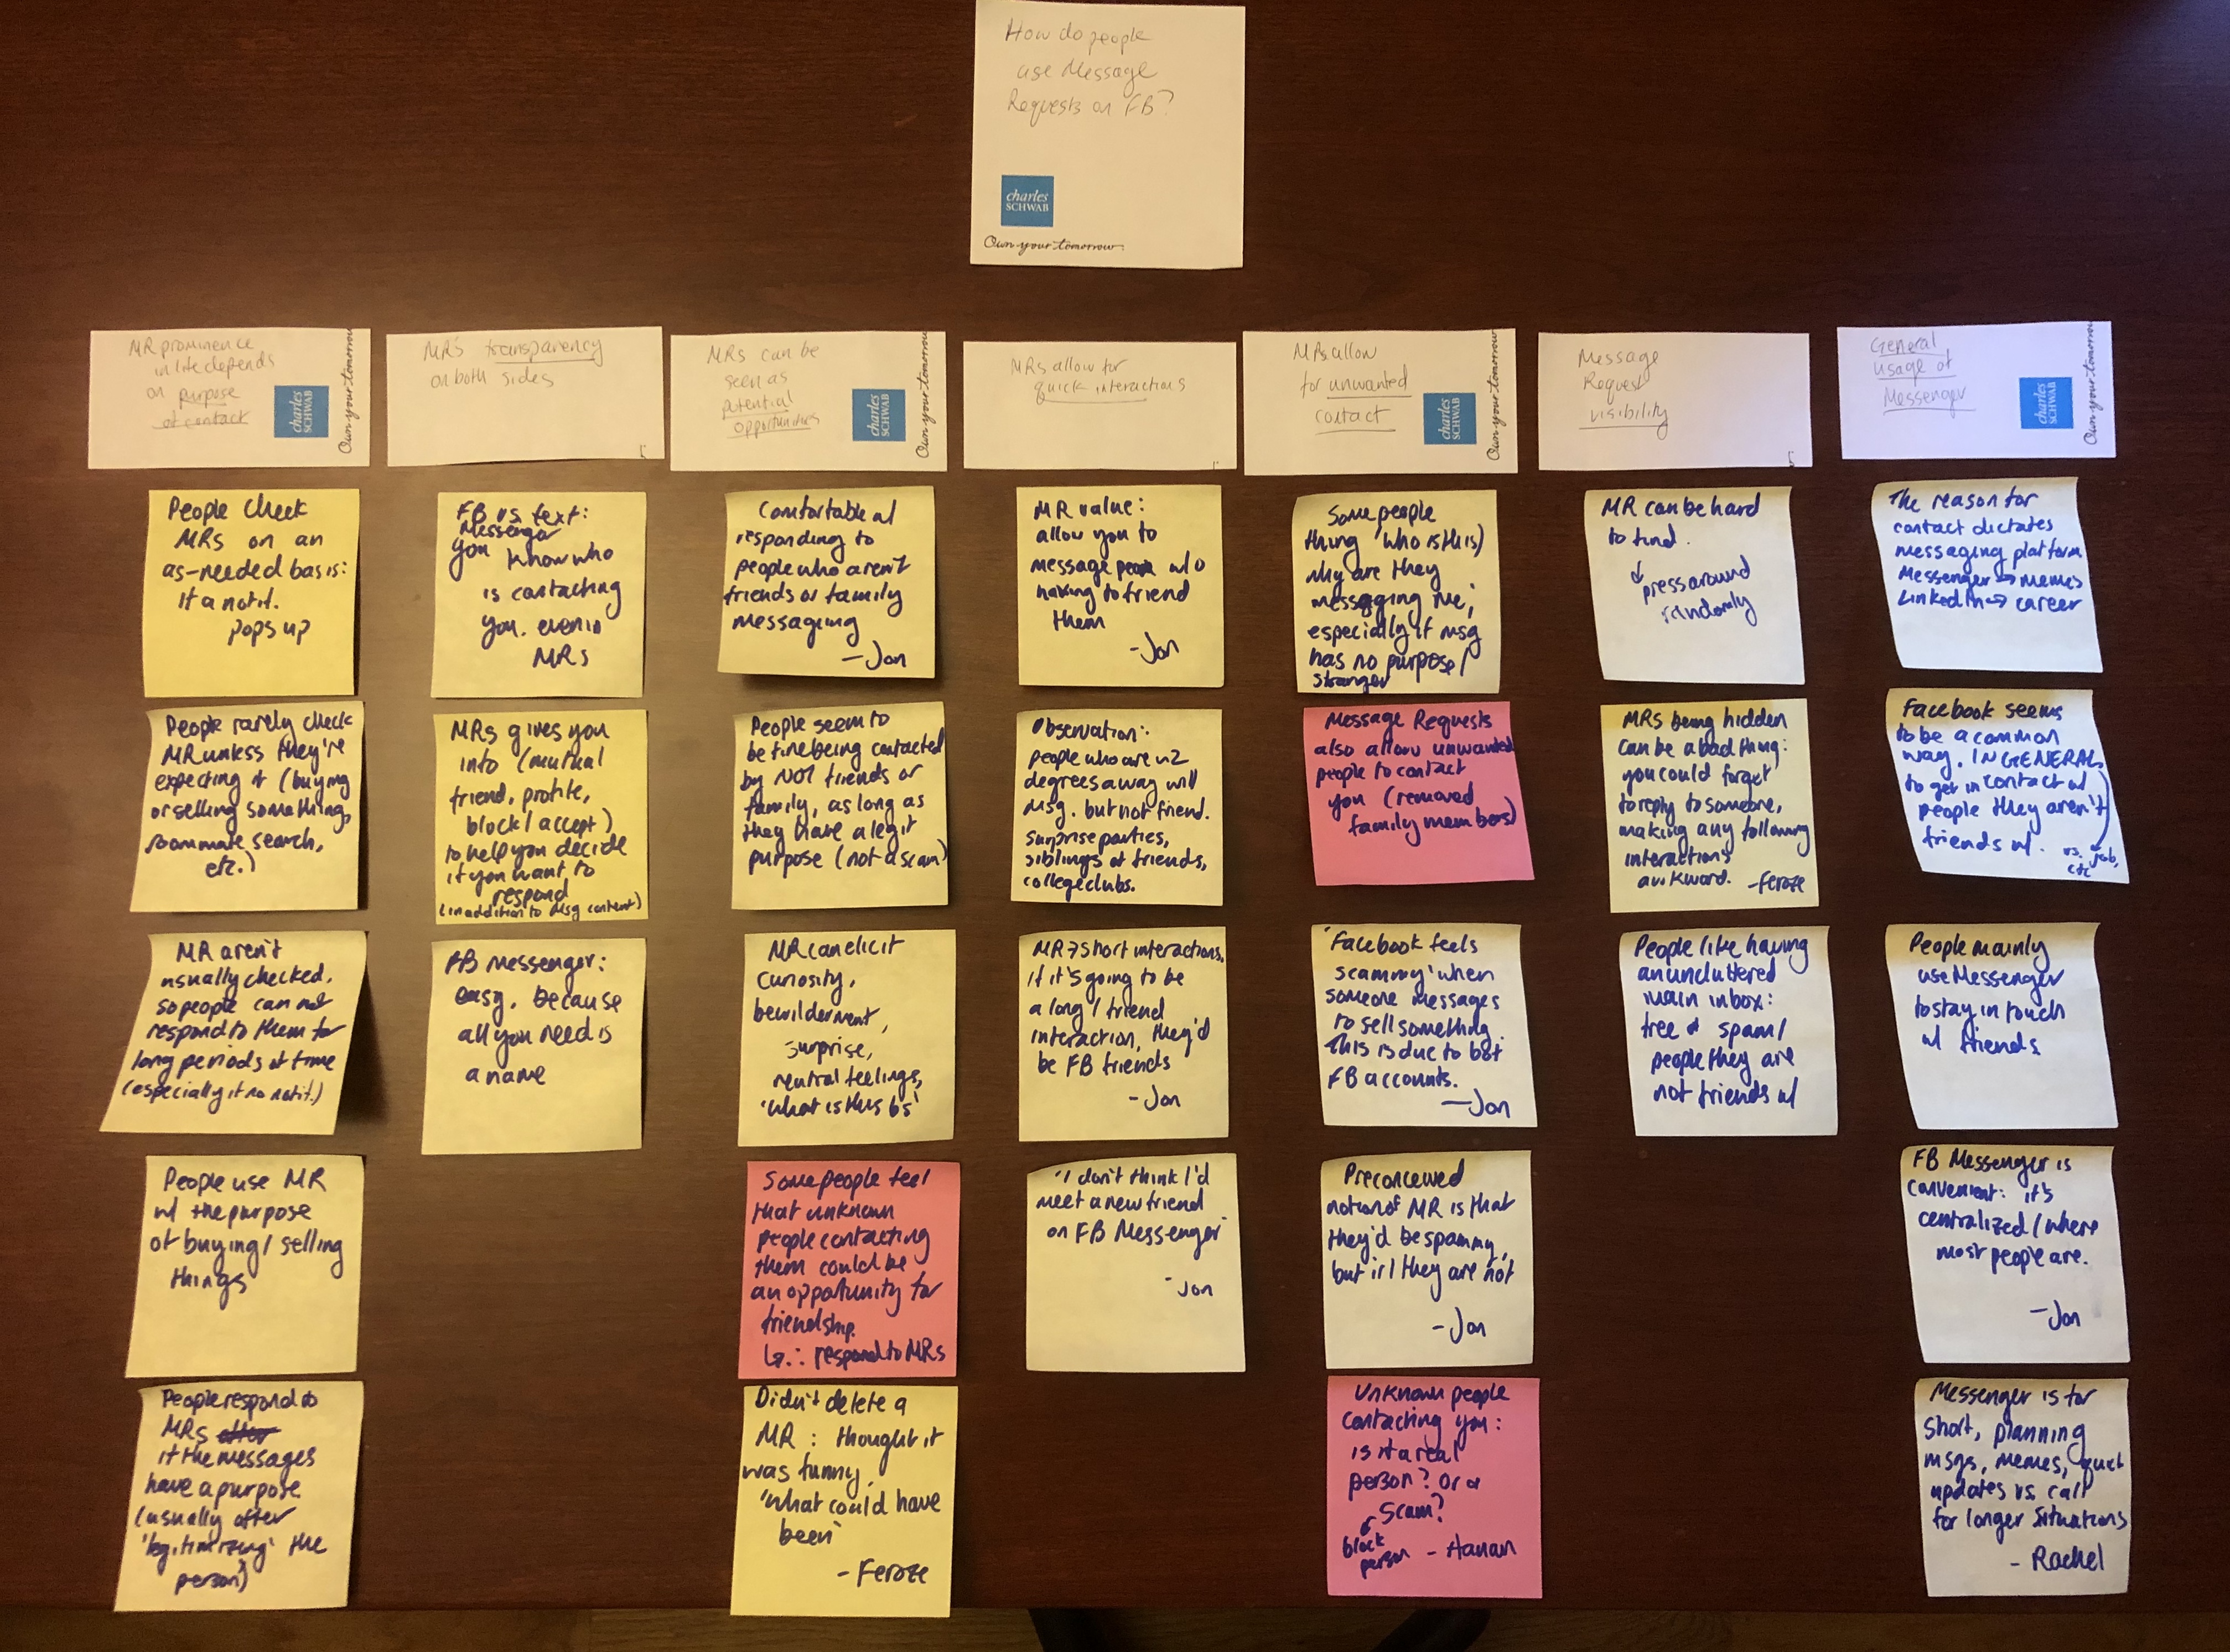 How do people
use Message
Requests on FB?
charles
SCHWAB
Own your tomorrow.
MR prominence
in life depends
on purpose
of contact
charles
SCHWAB
Own your tomorrow
People check
MRs on an
as-needed basis:
if a notif.
pops up
People rarely check
MR unless they're
expecting it (buying
or selling something,
roommate search,
etc.)
MR aren't
usually checked,
so people can not
respond to them for
long periods of time
(especially if no notif.)
People use MR
w/ the purpose
of buying/selling
things
People respond to
MRs after
if the messages
have a purpose
(usually after
'legitimizing' the
person)
MR's transparency
on both sides
FB vs. text:
Messenger
you know who
is contacting
you. even in
MRs
MRs gives you
info (mutual
friend, profile,
block/accept)
to help you decide
if you want to
respond
(in addition to msg content)
FB Messenger:
easy, because
all you need is
a name
MRs can be
seen as
potential
opportunities
charles
SCHWAB
Own your tomorrow
Comfortable w/
responding to
people who aren't
friends or family
messaging
- Jon
People seem to
be fine being contacted
by NOT friends or
family, as long as
they have a legit
purpose (not a scam)
MR can elicit
curiosity,
bewilderment,
surprise,
neutral feelings,
'what is this bs'
Some people feel
that unknown
people contacting
them could be
an opportunity for
friendship.
↳ ∴ respond to MRs
Didn't delete a
MR : thought it
was funny,
'what could have
been'
- Feroze
MRs allow for
quick interactions
MR value:
allow you to
message w/o
having to friend
them
- Jon
Observation:
people who are ~2
degrees away will
msg. but not friend.
surprise parties,
siblings of friends,
college clubs.
MR → short interactions.
if it's going to be
a long/friend
interaction, they'd
be FB friends
- Jon
"I don't think I'd
meet a new friend
on FB Messenger"
- Jon
MRs allow
for unwanted
contact
charles
SCHWAB
Own your tomorrow
Some people
thing 'who is this)
why are they
messaging me,'
especially if msg
has no purpose/
stranger
Message Requests
also allow unwanted
people to contact
you (removed
family members)
'Facebook feels
scammy' when
someone messages
to sell something.
This is due to bot
FB accounts.
- Jon
Preconceived
notion of MR is that
they'd be spammy,
but irl they are not
- Jon
Unknown people
contacting you:
is it a real
person? Or a
scam?
block
person - Hanan
Message
Request
visibility
MR can be hard
to find.
↓
press around
randomly
MRs being hidden
can be a bad thing:
you could forget
to reply to someone,
making any following
interactions
awkward. - Feroze
People like having
an uncluttered
main inbox:
free of spam/
people they are
not friends w/
General
usage of
Messenger
charles
SCHWAB
Own your tomorrow
The reason for
contact dictates
messaging platform
Messenger → memes
LinkedIn → career
Facebook seems
to be a common
way, IN GENERAL,
to get in contact w/
people they aren't
friends w/.
vs. job,
etc
People mainly
use Messenger
to stay in touch
w/ friends
FB Messenger is
convenient: it's
centralized/where
most people are.
- Jon
Messenger is for
short, planning
msgs, memes, quick
updates vs. call
for longer situations
- Rachel